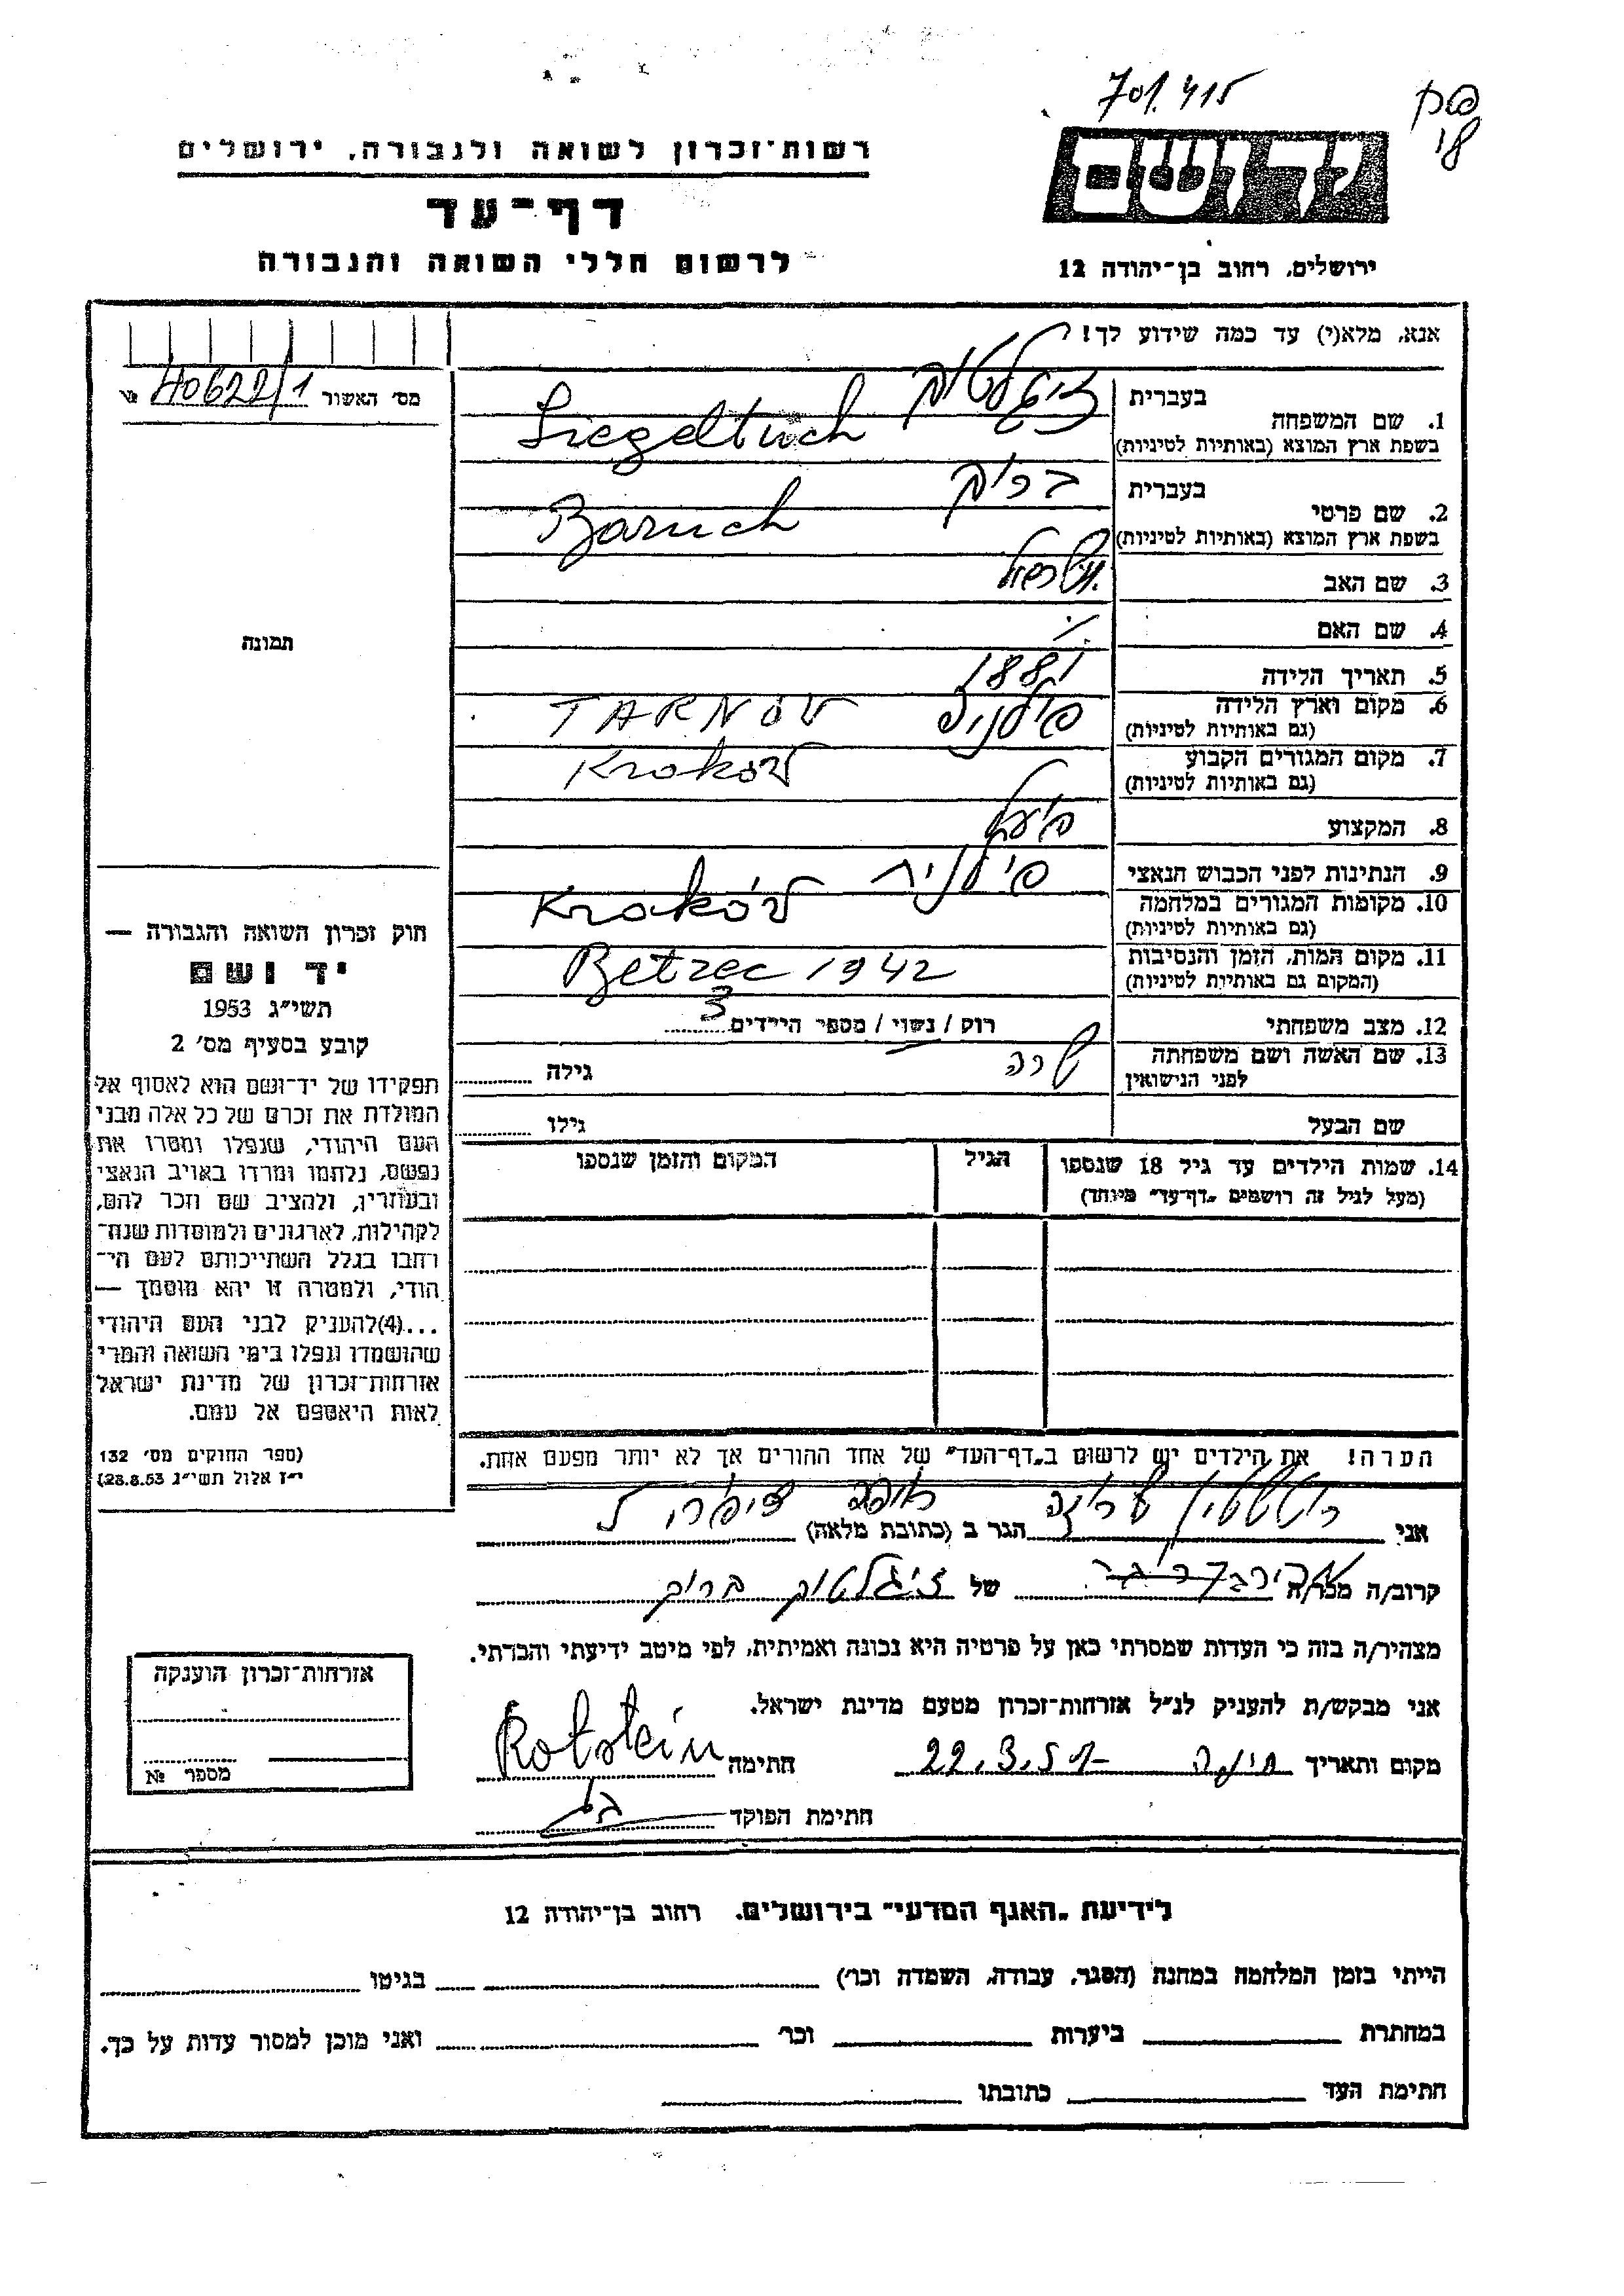 701.415
רשות־זכרון לשואה ולגבורה, ירושלים
דף־עד
לרשום חללי השואה והגבורה
יד ושם
ירושלים, רחוב בן־יהודה 12
אנא, מלא(י) עד כמה שידוע לך!
מס׳ האשור 40622/1
1. שם המשפחה
בעברית זיגלטוך
בשפת ארץ המוצא (באותיות לטיניות) Siegeltuch
2. שם פרטי
בעברית ברוך
בשפת ארץ המוצא (באותיות לטיניות) Baruch
3. שם האב
4. שם האם
5. תאריך הלידה 1881
6. מקום וארץ הלידה TARNÓV פולניה
(גם באותיות לטיניות)
7. מקום המגורים הקבוע Kroków
(גם באותיות לטיניות)
8. המקצוע פועל
9. הנתינות לפני הכבוש הנאצי פולנית
10. מקומות המגורים במלחמה Kraków
(גם באותיות לטיניות)
11. מקום המות, הזמן והנסיבות Betzec 1942
(המקום גם באותיות לטיניות)
12. מצב משפחתי רוק / נשוי / מספר הילדים 3
13. שם האשה ושם משפחתה שרה גילה
לפני הנישואין
שם הבעל גילו
14. שמות הילדים עד גיל 18 שנספו הגיל המקום והזמן שנספו
(מעל לגיל זה רושמים „דף־עד״ מיוחד)
הערה! את הילדים יש לרשום ב„דף־העד״ של אחד ההורים אך לא יותר מפעם אחת.
תמונה
חוק זכרון השואה והגבורה —
יד ושם
תשי״ג 1953
קובע בסעיף מס׳ 2
תפקידו של יד־ושם הוא לאסוף אל
המולדת את זכרם של כל אלה מבני
העם היהודי, שנפלו ומסרו את
נפשם, נלחמו ומרדו באויב הנאצי
ובעוזריו, ולהציב שם וזכר להם,
לקהילות, לארגונים ולמוסדות שנח־
רחבו בגלל השתייכותם לעם הי־
הודי, ולמטרה זו יהא מוסמך —
...(4)להעניק לבני העם היהודי
שהושמדו ונפלו בימי השואה והמרי
אזרחות־זכרון של מדינת ישראל
לאות היאספם אל עמם.
(ספר החוקים מס׳ 132
י״ז אלול תשי״ג 28.8.53)
אני רוטשטין הגר ב (כתובת מלאה) חיפה
קרוב/ה מכר/ה של זיגלטוך ברוך
מצהיר/ה בזה כי העדות שמסרתי כאן על פרטיה היא נכונה ואמיתית, לפי מיטב ידיעתי והכרתי.
אני מבקש/ת להעניק לנ״ל אזרחות־זכרון מטעם מדינת ישראל.
מקום ותאריך חיפה 22.3.57 חתימה Rotstein
חתימת הפוקד
אזרחות־זכרון הוענקה
מספר №
לידיעת „האגף המדעי״ בירושלים. רחוב בן־יהודה 12
הייתי בזמן המלחמה במחנה (הסגר, עבודה, השמדה וכו׳) בגיטו
במחתרת ביערות וכו׳ ואני מוכן למסור עדות על כך.
חתימת העד כתובתו